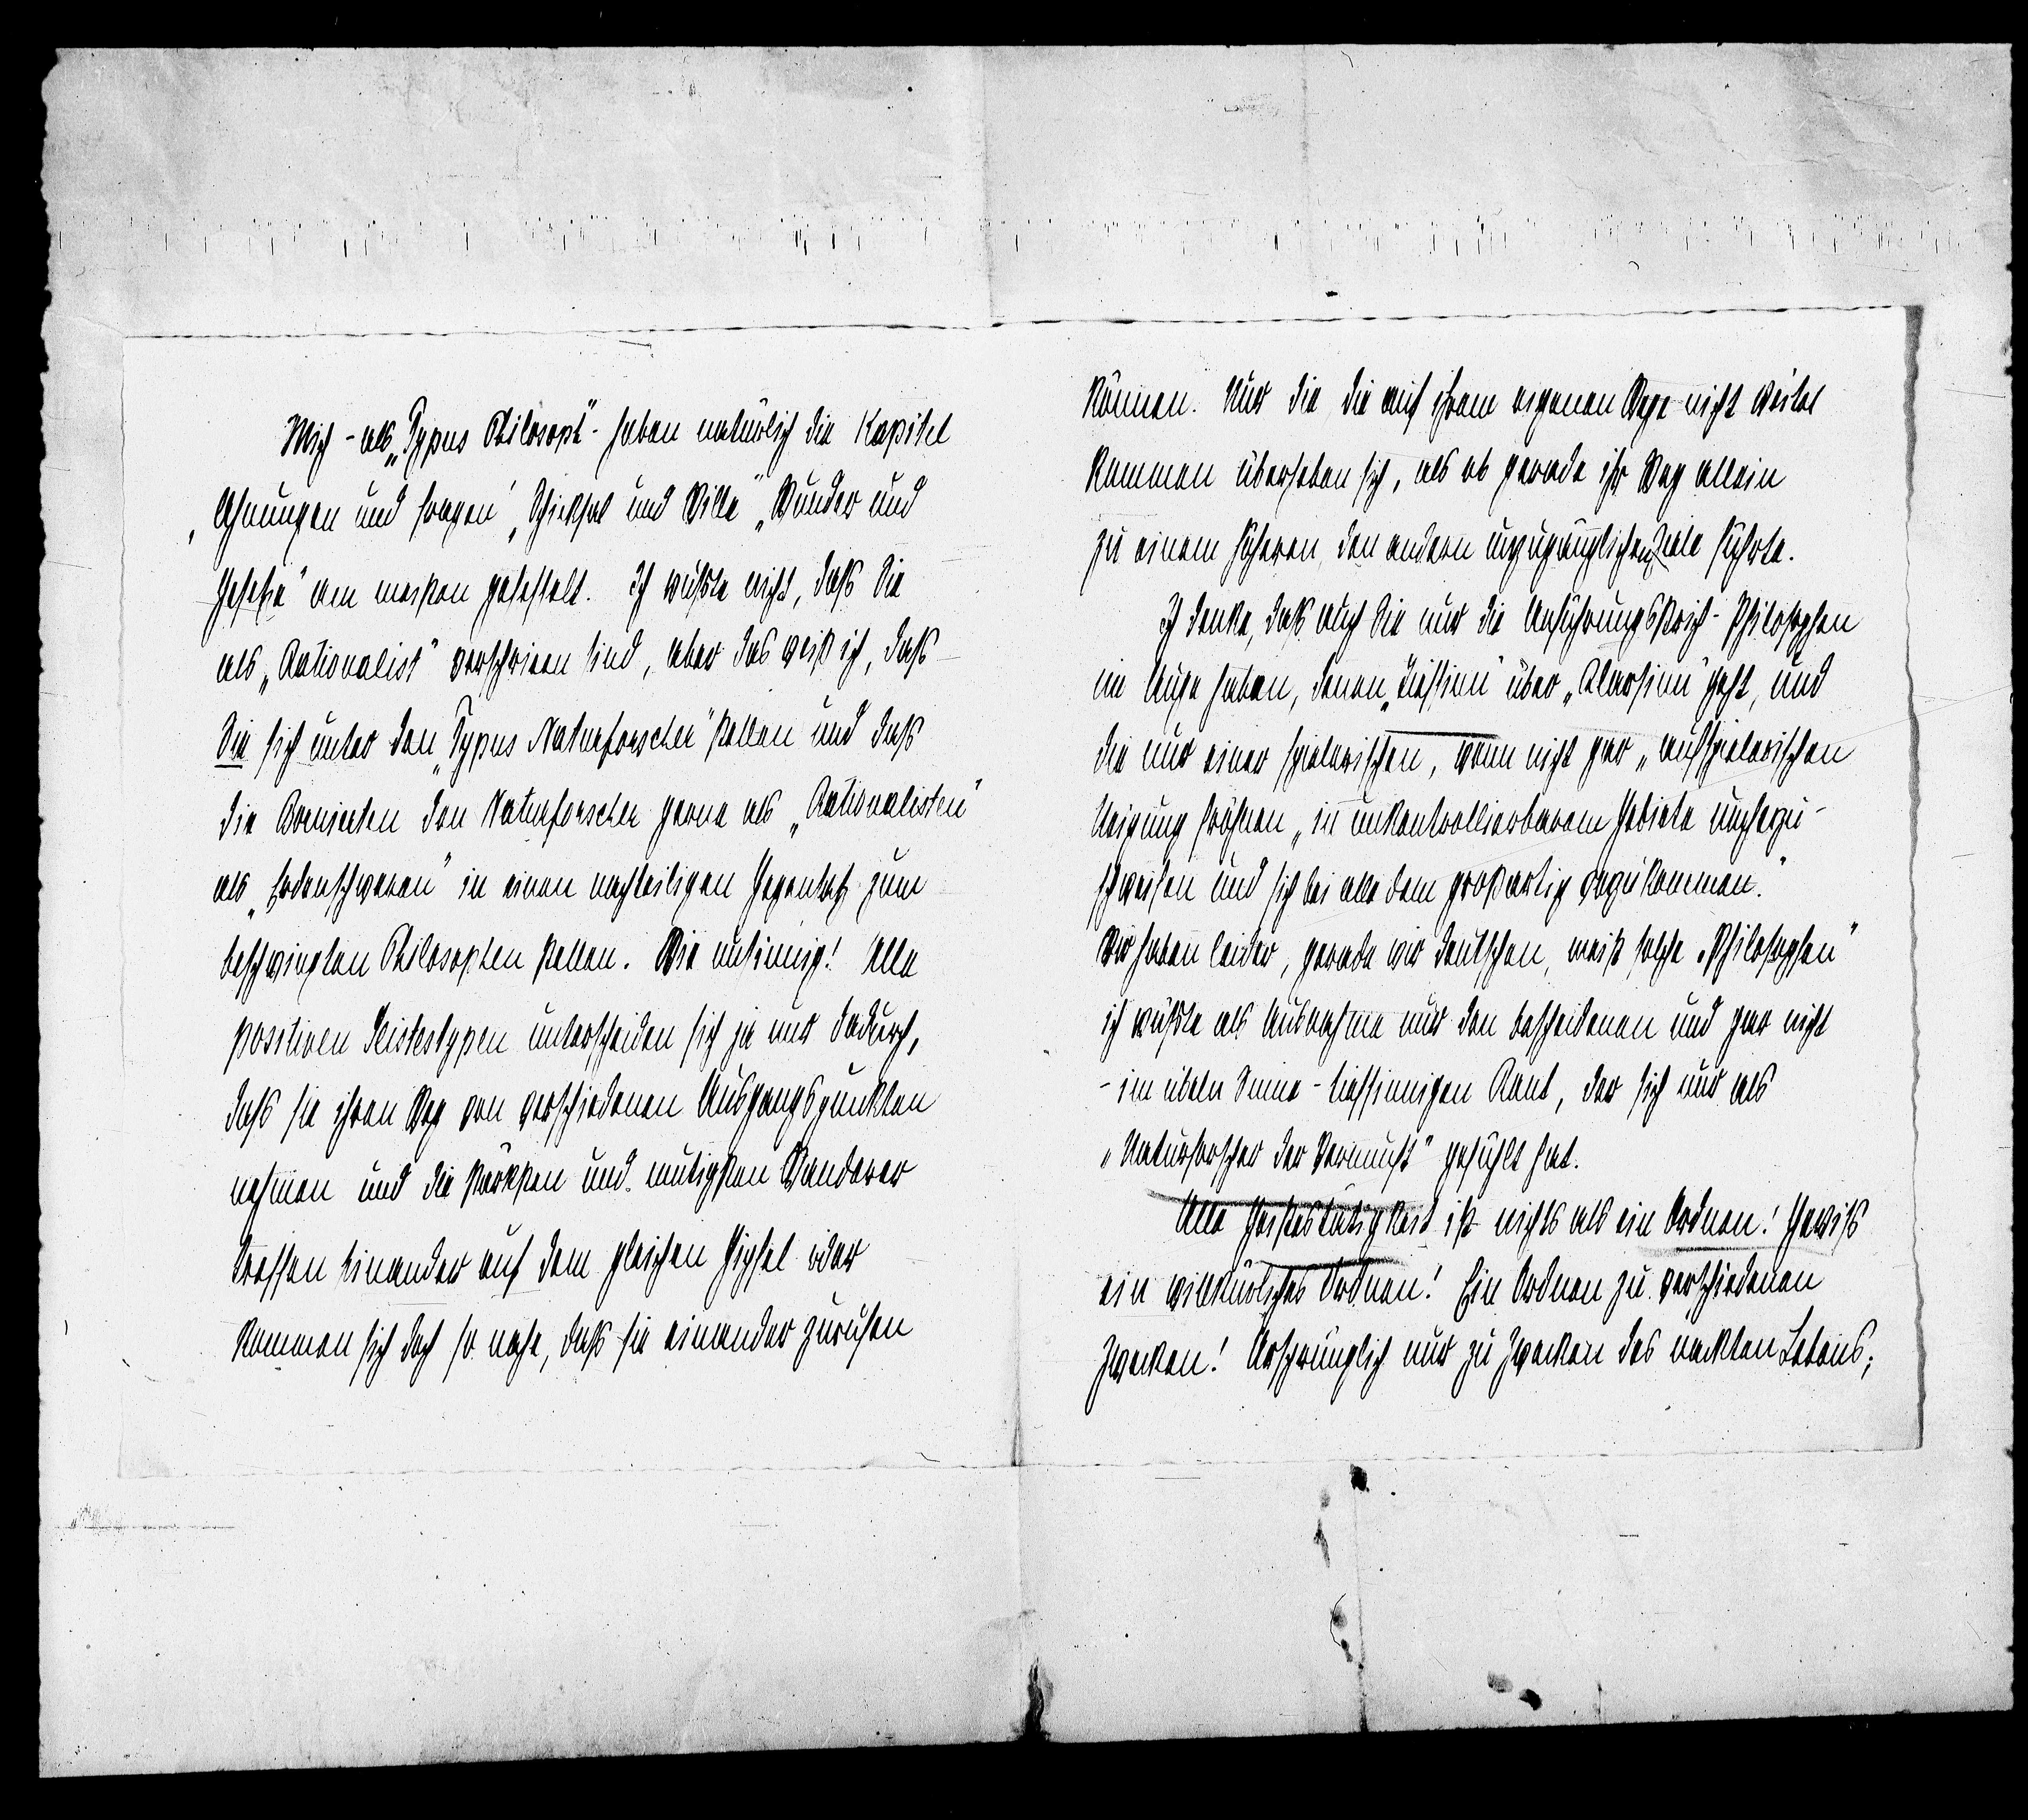 Mich - als „Typus Philosoph" - haben natürlich die Kapitel
„Ahnungen und Fragen" „Schicksal und Wille" „Wunder und
Gesetze" am meisten gefesselt. Ich wußte nicht, daß Sie
als „Rationalist" verschrieen sind, aber das weiß ich, daß
Sie sich unter den „Typus Naturforscher" stellen und daß
die Bornierten den Naturforscher gerne als „Rationalisten"
als „Erdenschweren" in einen nachteiligen Gegensatz zum
beschwingten Philosophen stellen. Wie unsinnig! Alle
positiven Geistestypen unterscheiden sich ja nur dadurch,
daß sie ihren Weg von verschiedenen Ausgangspunkten
nehmen und die stärksten und mutigsten Wanderer
treffen einander auf dem gleichen Gipfel oder
kommen sich doch so nahe, daß sie einander zurufen
können. Nur die, die auf ihrem eigenen Wege nicht weiter
kommen überheben sich, als ob gerade ihr Weg allein
zu einem höheren, den andern unzugänglichen Ziele führte.
Ich denke, daß auch Sie nur die Anführungsstrich-Philosophen
im Auge haben, denen „Tiefsinn" über „Klarsinn" geht, und
die nur einer spielerischen, wenn nicht gar „aufspielerischen
Neigung fröhnen „in unkontrollierbarem Gebiete umherzu-
schweifen und sich bei alle dem großartig vorzukommen."
Wir haben leider, gerade wir Deutschen, meist solche „Philosophen"
ich wüßte als Ausnahme nur den bescheidenen und gar nicht
- im übeln Sinne - tiefsinnigen Kant, der sich nur als
„Naturforscher der Vernunft" gefühlt hat.
Alle Geistestätigkeit ist nichts als ein Ordnen! Gewiß
ein willkürliches Ordnen! Ein Ordnen zu verschiedenen
Zwecken! Ursprünglich nur zu Zwecken des nackten Lebens;